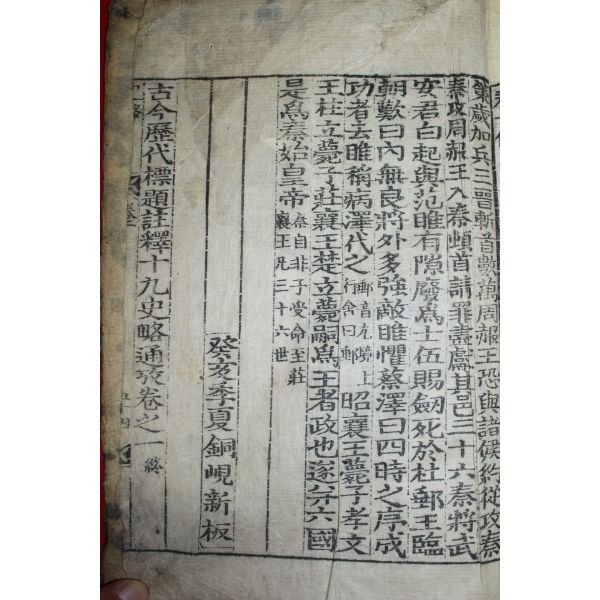 歲加兵三晉斬首數萬周赧王恐與諸侯約從攻秦
秦攻周赧王入秦頓首請罪盡獻其邑三十六秦將武
安君白起與范睢有隙廢爲士伍賜劒死於杜郵王臨
朝歎曰內無良將外多強敵睢懼蔡澤曰四時之序成
功者去睢稱病澤代之 郵音尤境上行舍曰郵 昭襄王薨子孝文
王柱立薨子莊襄王楚立薨嗣爲王者政也遂幷六國
是爲秦始皇帝 秦自非子受命至莊襄王凡三十六世
癸亥季夏銅峴新板
古今歷代標題註釋十九史略通攷卷之一 終
史略 卷一 五十四